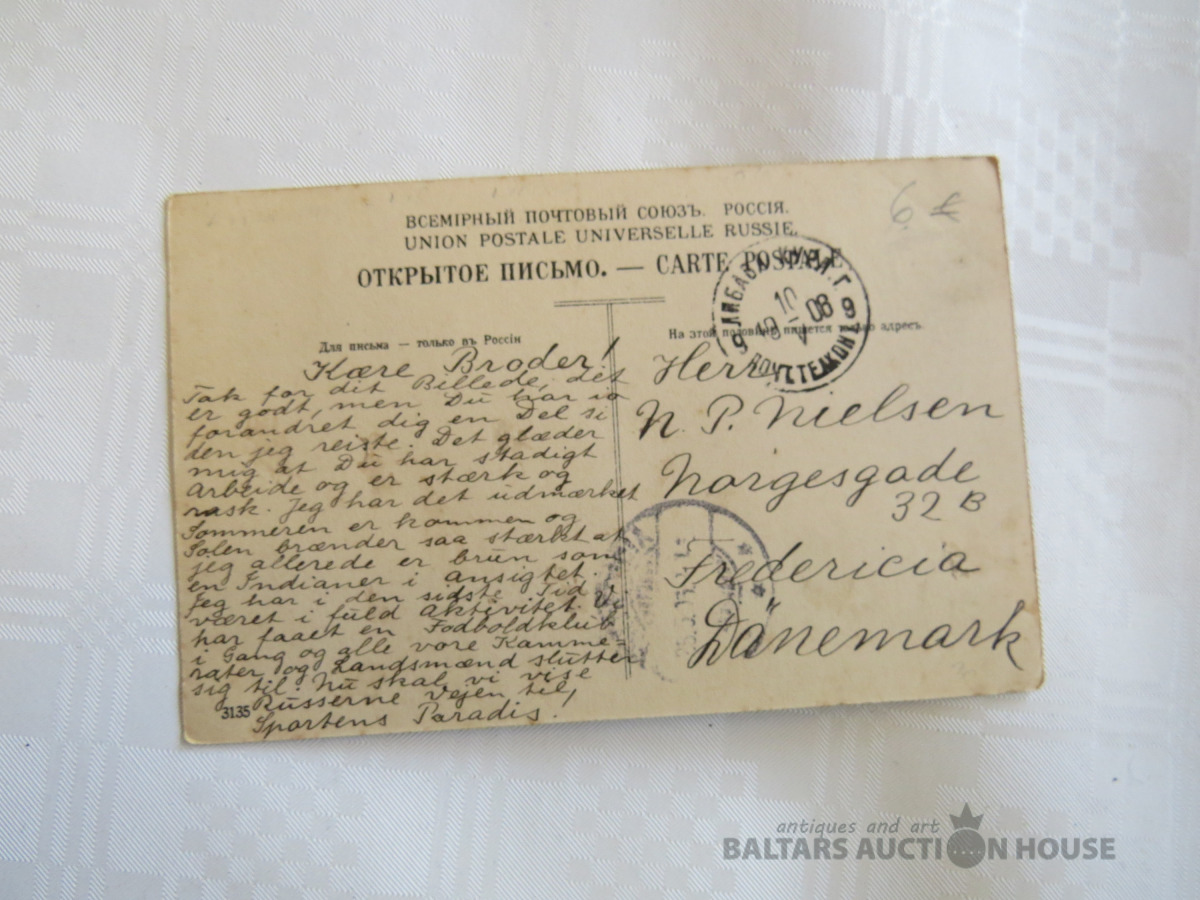 6 €
ВСЕМІРНЫЙ ПОЧТОВЫЙ СОЮЗЪ. РОССІЯ.
UNION POSTALE UNIVERSELLE RUSSIE.
ОТКРЫТОЕ ПИСЬМО. — CARTE POSTALE
Для письма — только въ Россіи
Kære Broder!
Tak for dit Billede, det
er godt, men Du har jo
forandret dig en Del si
den jeg reiste. Det glæder
mig at Du har stadigt
arbeide og er stærk og
rask. Jeg har det udmærket
Sommeren er kommen og
Solen brænder saa stærkt at
jeg allerede er brun som
en Indianer i ansigtet.
Jeg har i den sidste Tid
været i fuld aktivitet. Vi
har faaet en Fodboldklub
i Gang og alle vore Kamme-
rater og Landsmænd slutter
sig til. Nu skal vi vise
Russerne Vejen til
Sportens Paradis!
3135
На этой половинѣ пишется только адресъ.
Herr
N. P. Nielsen
Norgesgade
32 B
Fredericia
Dänemark
ЛИБАВА КУРЛ. Г.
10
19 V 08
9 9
ПОЧТ ТЕЛ КОН
antiques and art
BALTARS AUCTION HOUSE